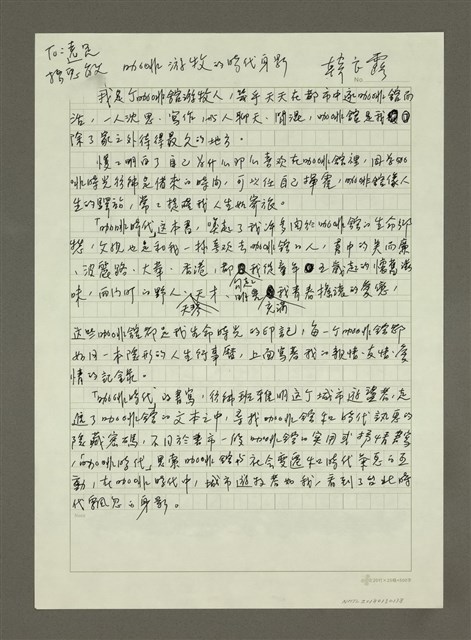 To: 遠
咖啡游牧的時代身影 韓良露
No.
我是个咖啡館游牧人，幾乎天天在都市中逐咖啡館而
活，一人沈思、寫作，和人聊天、閒混，咖啡館是我
除了家之外待得最久的地方。
慢慢明白了自己为什么那么喜欢在咖啡館裡，因為咖
啡時光彷彿是借來的時間，可以任自己揮霍，咖啡館像人
生的驛站，常々提醒我人生如寄旅。
「咖啡時代」這本書，喚起了我許多関於咖啡館的生命鄉
愁，文挽也是和我一樣喜欢去咖啡館的人，書中的美而廉
、波麗路、大華、香港，都 我從童年 五歲起的懷舊滋
味，而的町的野人、天才、明星 我青春擾攘的憂鬱，
天琴 充滿
這些咖啡館都是我生命時光的印記，每一个咖啡館都
如同一本隱形的人生行事曆，上面寫著我的親情、友情、愛
情的記錄。
「咖啡時代」的書寫，彷彿班雅明这个城市遊蕩者，走
進了咖啡館的文本之中，尋找咖啡館和時代訊息的
隱藏密碼，不同於書市一般咖啡館的實用或抒情書寫
，「咖啡時代」思索咖啡館与社會變遷和時代氣息的互
動，在咖啡時代中，城市遊牧者如我，看到了台北時
代飄忽的身影。